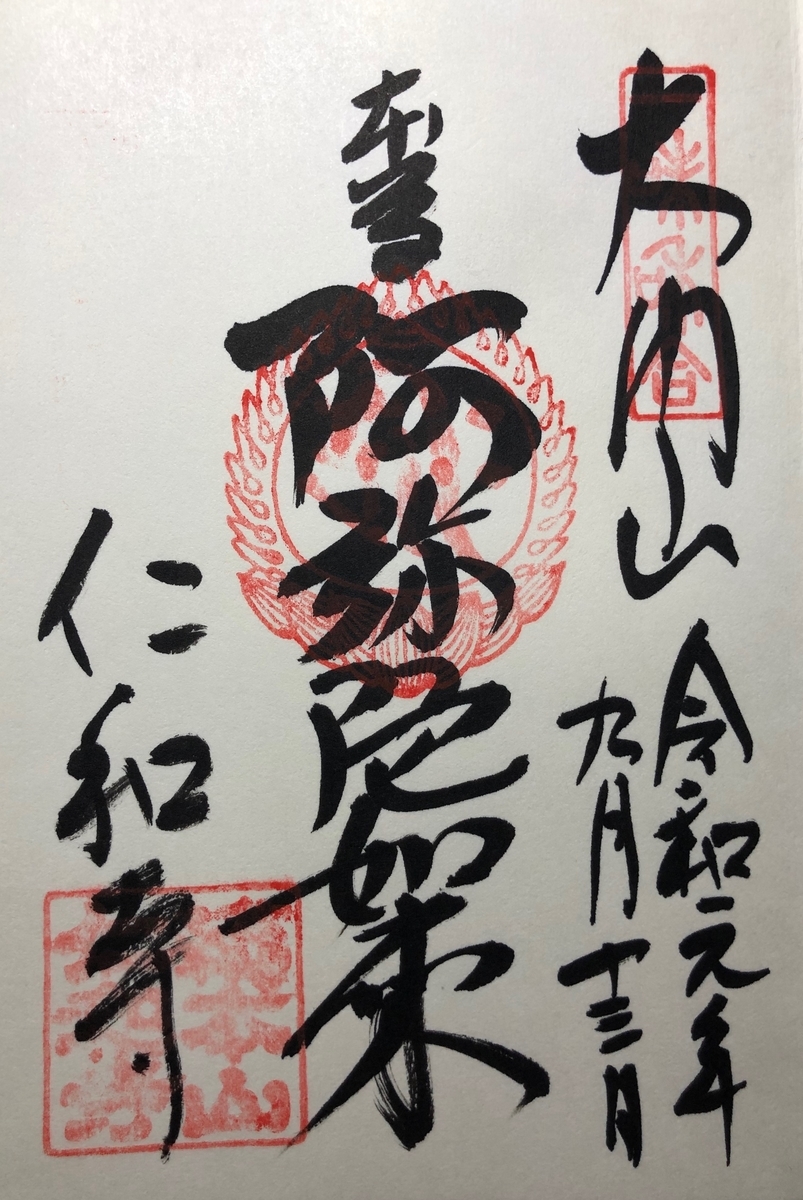 大内山
令和元年
九月十三日
本尊
阿弥陀如来
仁和寺